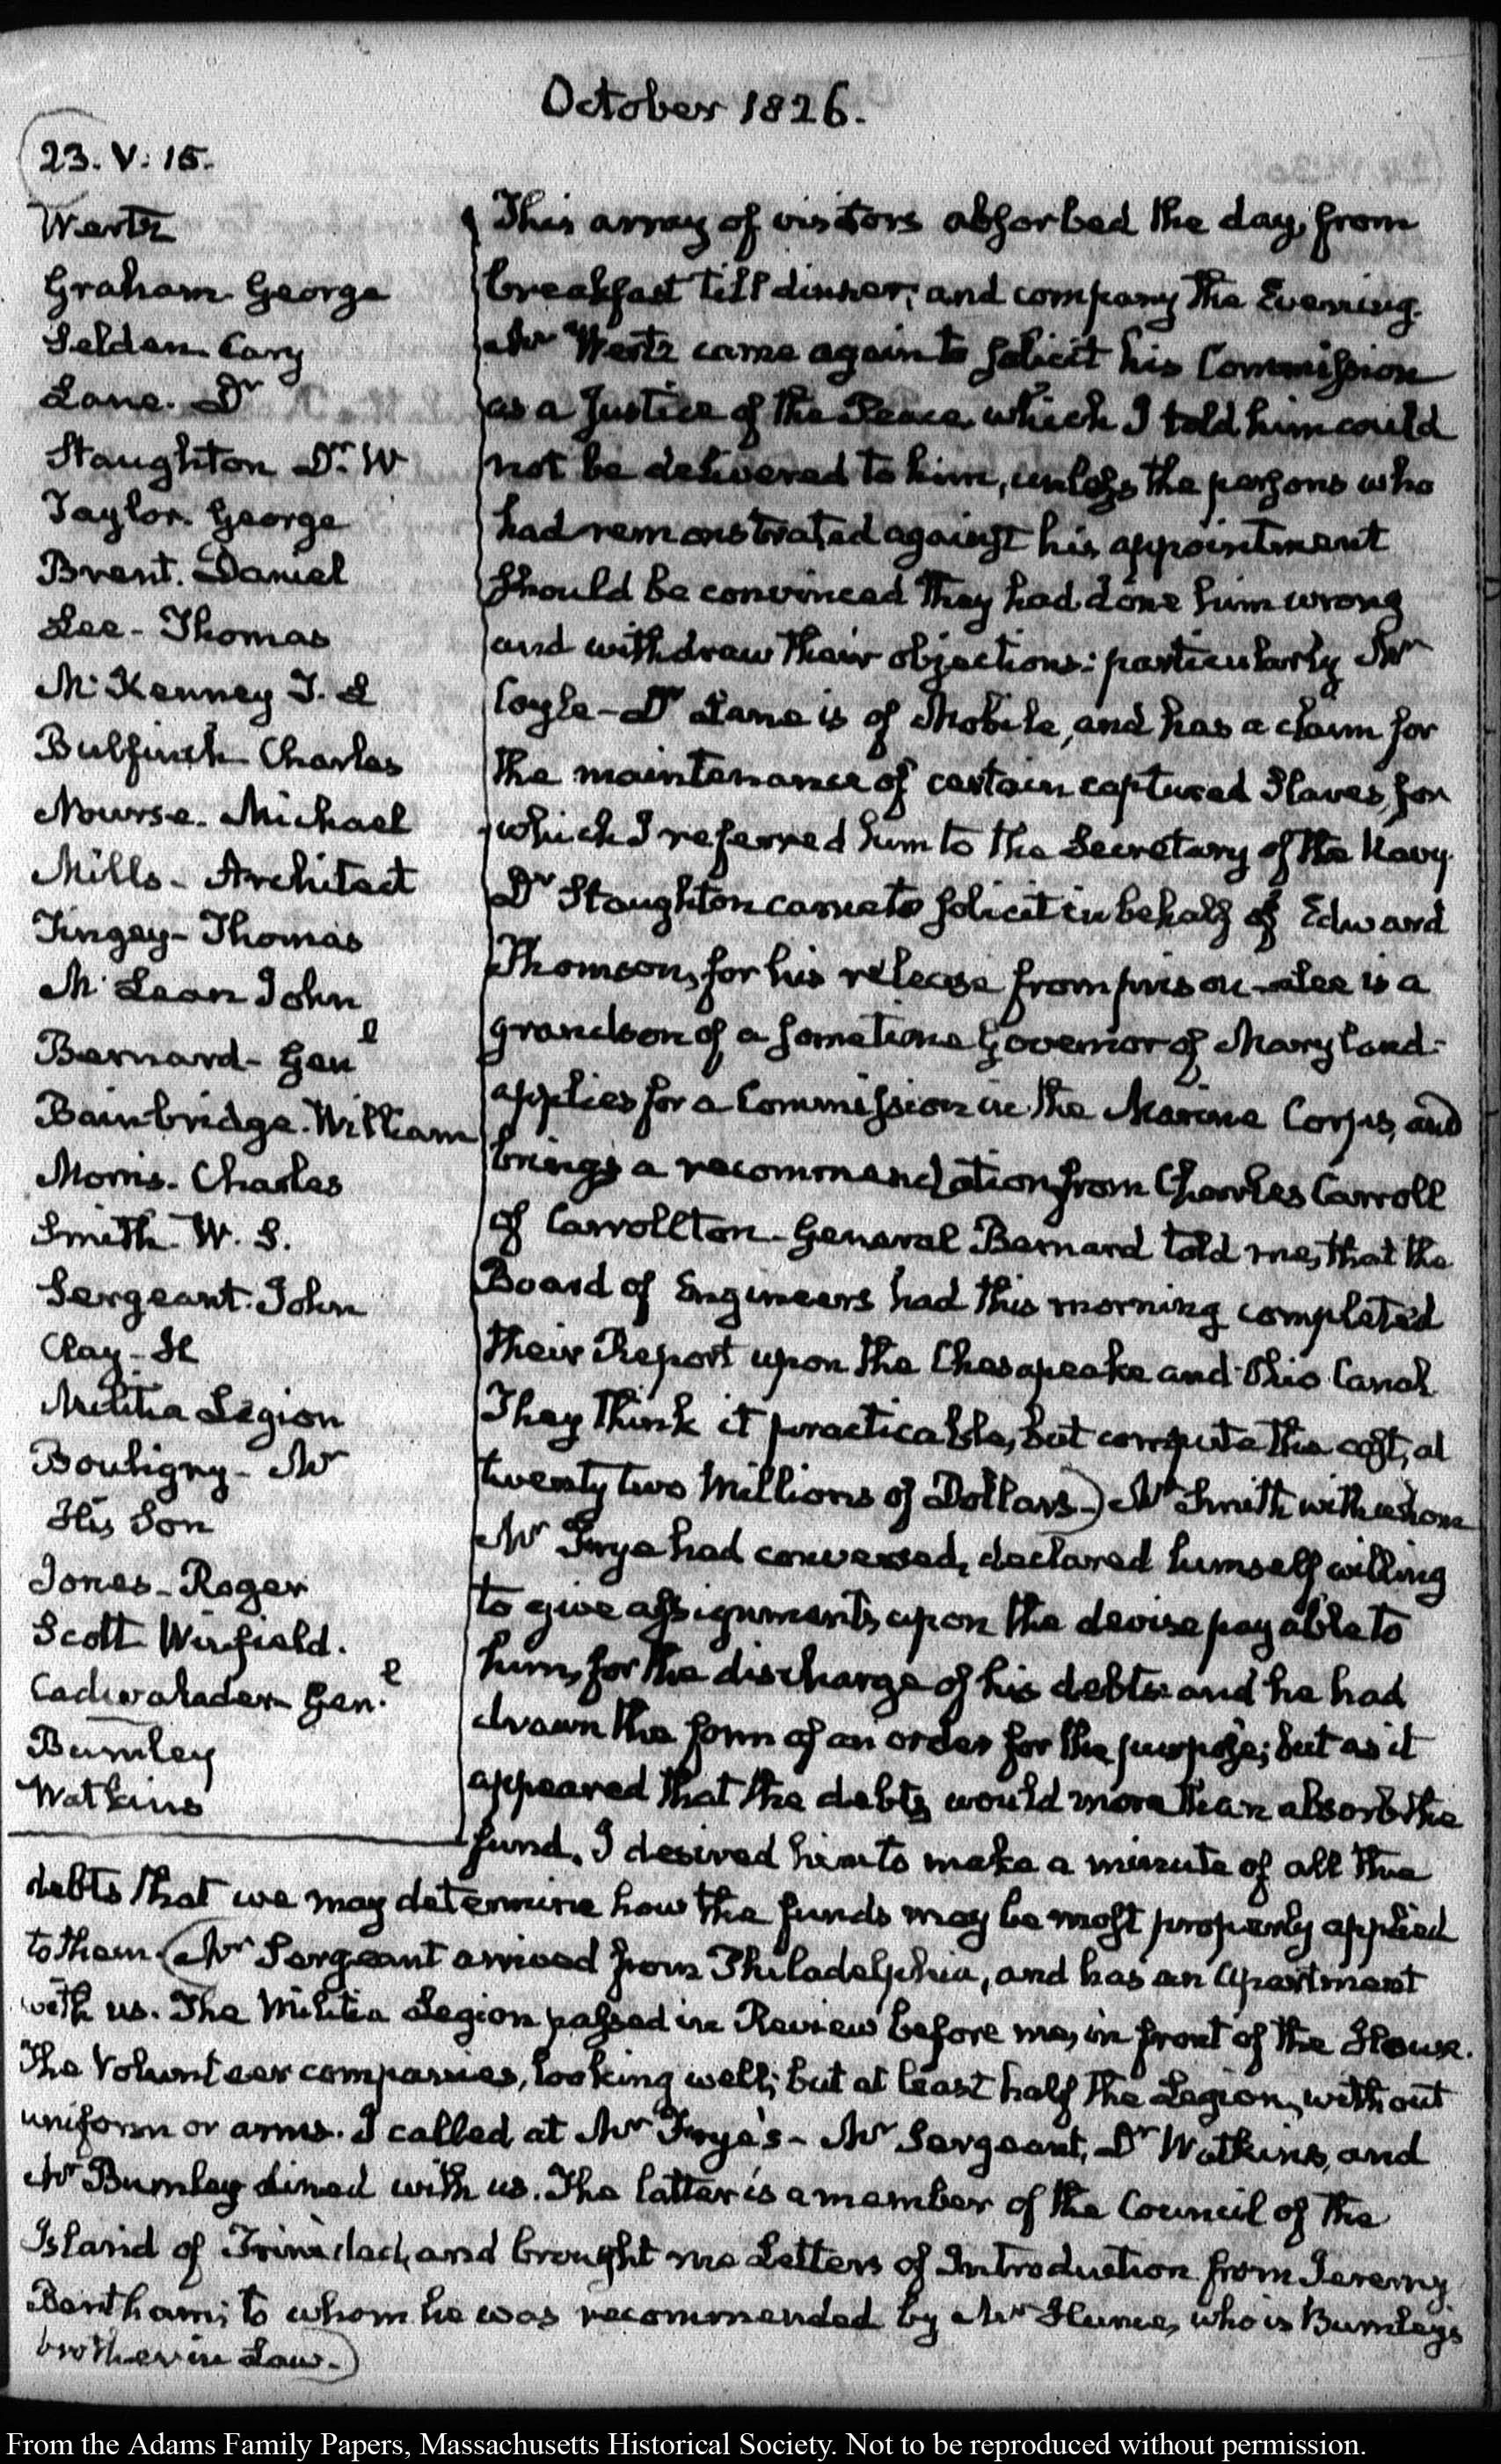 October 1826.
23. V: 15.
Wertz
Graham George
Selden Cary
Lane. Dr
Staughton Dr. W
Taylor. George
Brent. Daniel
Lee - Thomas
McKenney T. L
Bulfinch Charles
Nourse. Michael
Mills - Architect
Tingey - Thomas
McLean John
Bernard - Genl
Bainbridge. William
Morris. Charles
Smith W. S.
Sergeant. John
Clay - H
Militia Legion
Bouligny - Mr
His Son
Jones - Roger
Scott Winfield.
Cadwalader Gen.l
Burnley
Watkins
This array of visitors absorbed the day, from
breakfast till dinner; and company the Evening.
Mr Wertz came again to solicit his Commission
as a Justice of the Peace, which I told him could
not be delivered to him, unless the persons who
had remonstrated against his appointment
should be convinced they had done him wrong
and withdraw their objections: particularly Mr
Coyle - Dr Lane is of Mobile, and has a claim for
the maintenance of certain captured Slaves, for
which I referred him to the Secretary of the Navy.
Dr Staughton came to solicit in behalf of Edward
Thomson, for his release from prison - Lee is a
grandson of a sometime Governor of Maryland -
applies for a Commission in the Marine Corps, and
brings a recommendation from Charles Carroll
of Carrollton - General Bernard told me, that the
Board of Engineers had this morning completed
their Report upon the Chesapeake and Ohio Canal
They think it practicable, but compute the cost, at
twenty two Millions of Dollars -) Mr Smith with whom
Mr Frye had conversed, declared himself willing
to give assignments upon the devise payable to
him, for the discharge of his debts and he had
drawn the form of an order for the purpose; but as it
appeared that the debts would more than absorb the
fund, I desired him to make a minute of all the
debts that we may determine how the funds may be most properly applied
to them (Mr Sergeant arrived from Philadelphia, and has an apartment
with us. The Militia Legion passed in Review before me, in front of the House.
The Volunteer companies, looking well; but at least half the Legion, without
uniform or arms. I called at Mr Frye's - Mr Sergeant, Dr Watkins, and
Mr Burnley dined with us. The latter is a member of the Council of the
Island of Trinidad, and brought me Letters of Introduction from Jeremy
Bentham; to whom he was recommended by Mr Hume, who is Burnley's
brother in Law -)
From the Adams Family Papers, Massachusetts Historical Society. Not to be reproduced without permission.